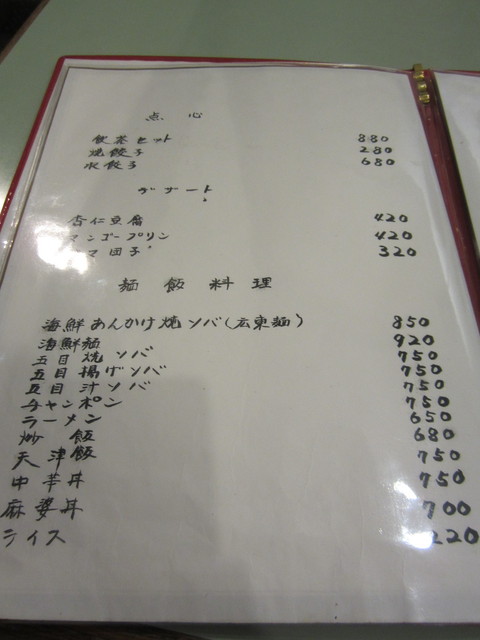 点心
飲茶セット 880
焼餃子 280
水餃子 680
デザート
杏仁豆腐 420
マンゴープリン 420
マ団子 320
麺飯料理
海鮮あんかけ焼ソバ(広東麺) 850
海鮮麺 920
五目焼ソバ 750
五目揚げソバ 750
五目汁ソバ 750
チャンポン 750
ラーメン 650
炒飯 680
天津飯 750
中華丼 750
麻婆丼 700
ライス 220